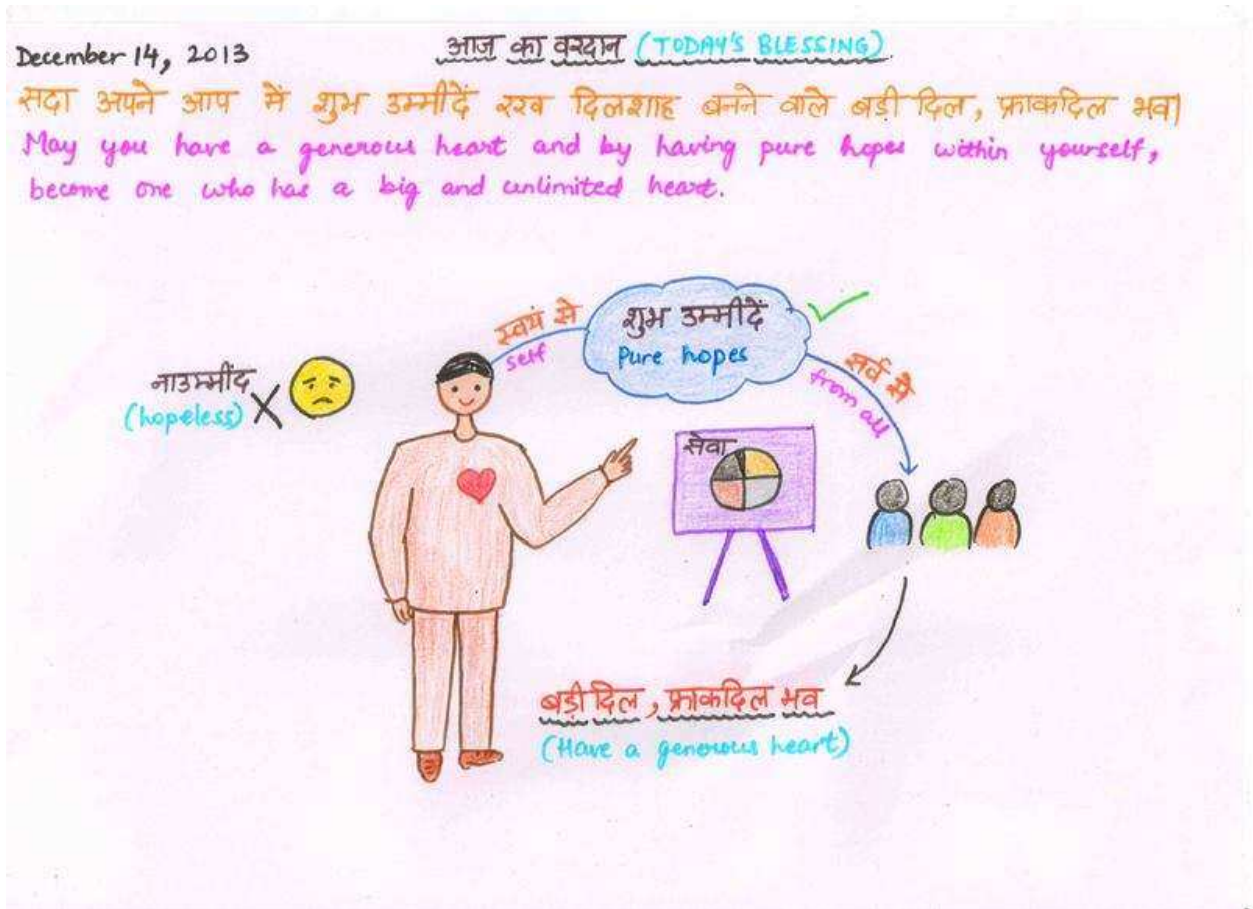 December 14, 2013
आज का वरदान (TODAY'S BLESSING).
सदा अपने आप में शुभ उम्मीदें रख दिलशाह बनने वाले बड़ी दिल, फ्राकदिल भव।
May you have a generous heart and by having pure hopes within yourself,
become one who has a big and unlimited heart.
स्वयं से
self
शुभ उम्मीदें
Pure hopes
सर्व से
from all
नाउम्मींद
(hopeless)
सेवा
बड़ी दिल, फ्राकदिल भव
(Have a generous heart)